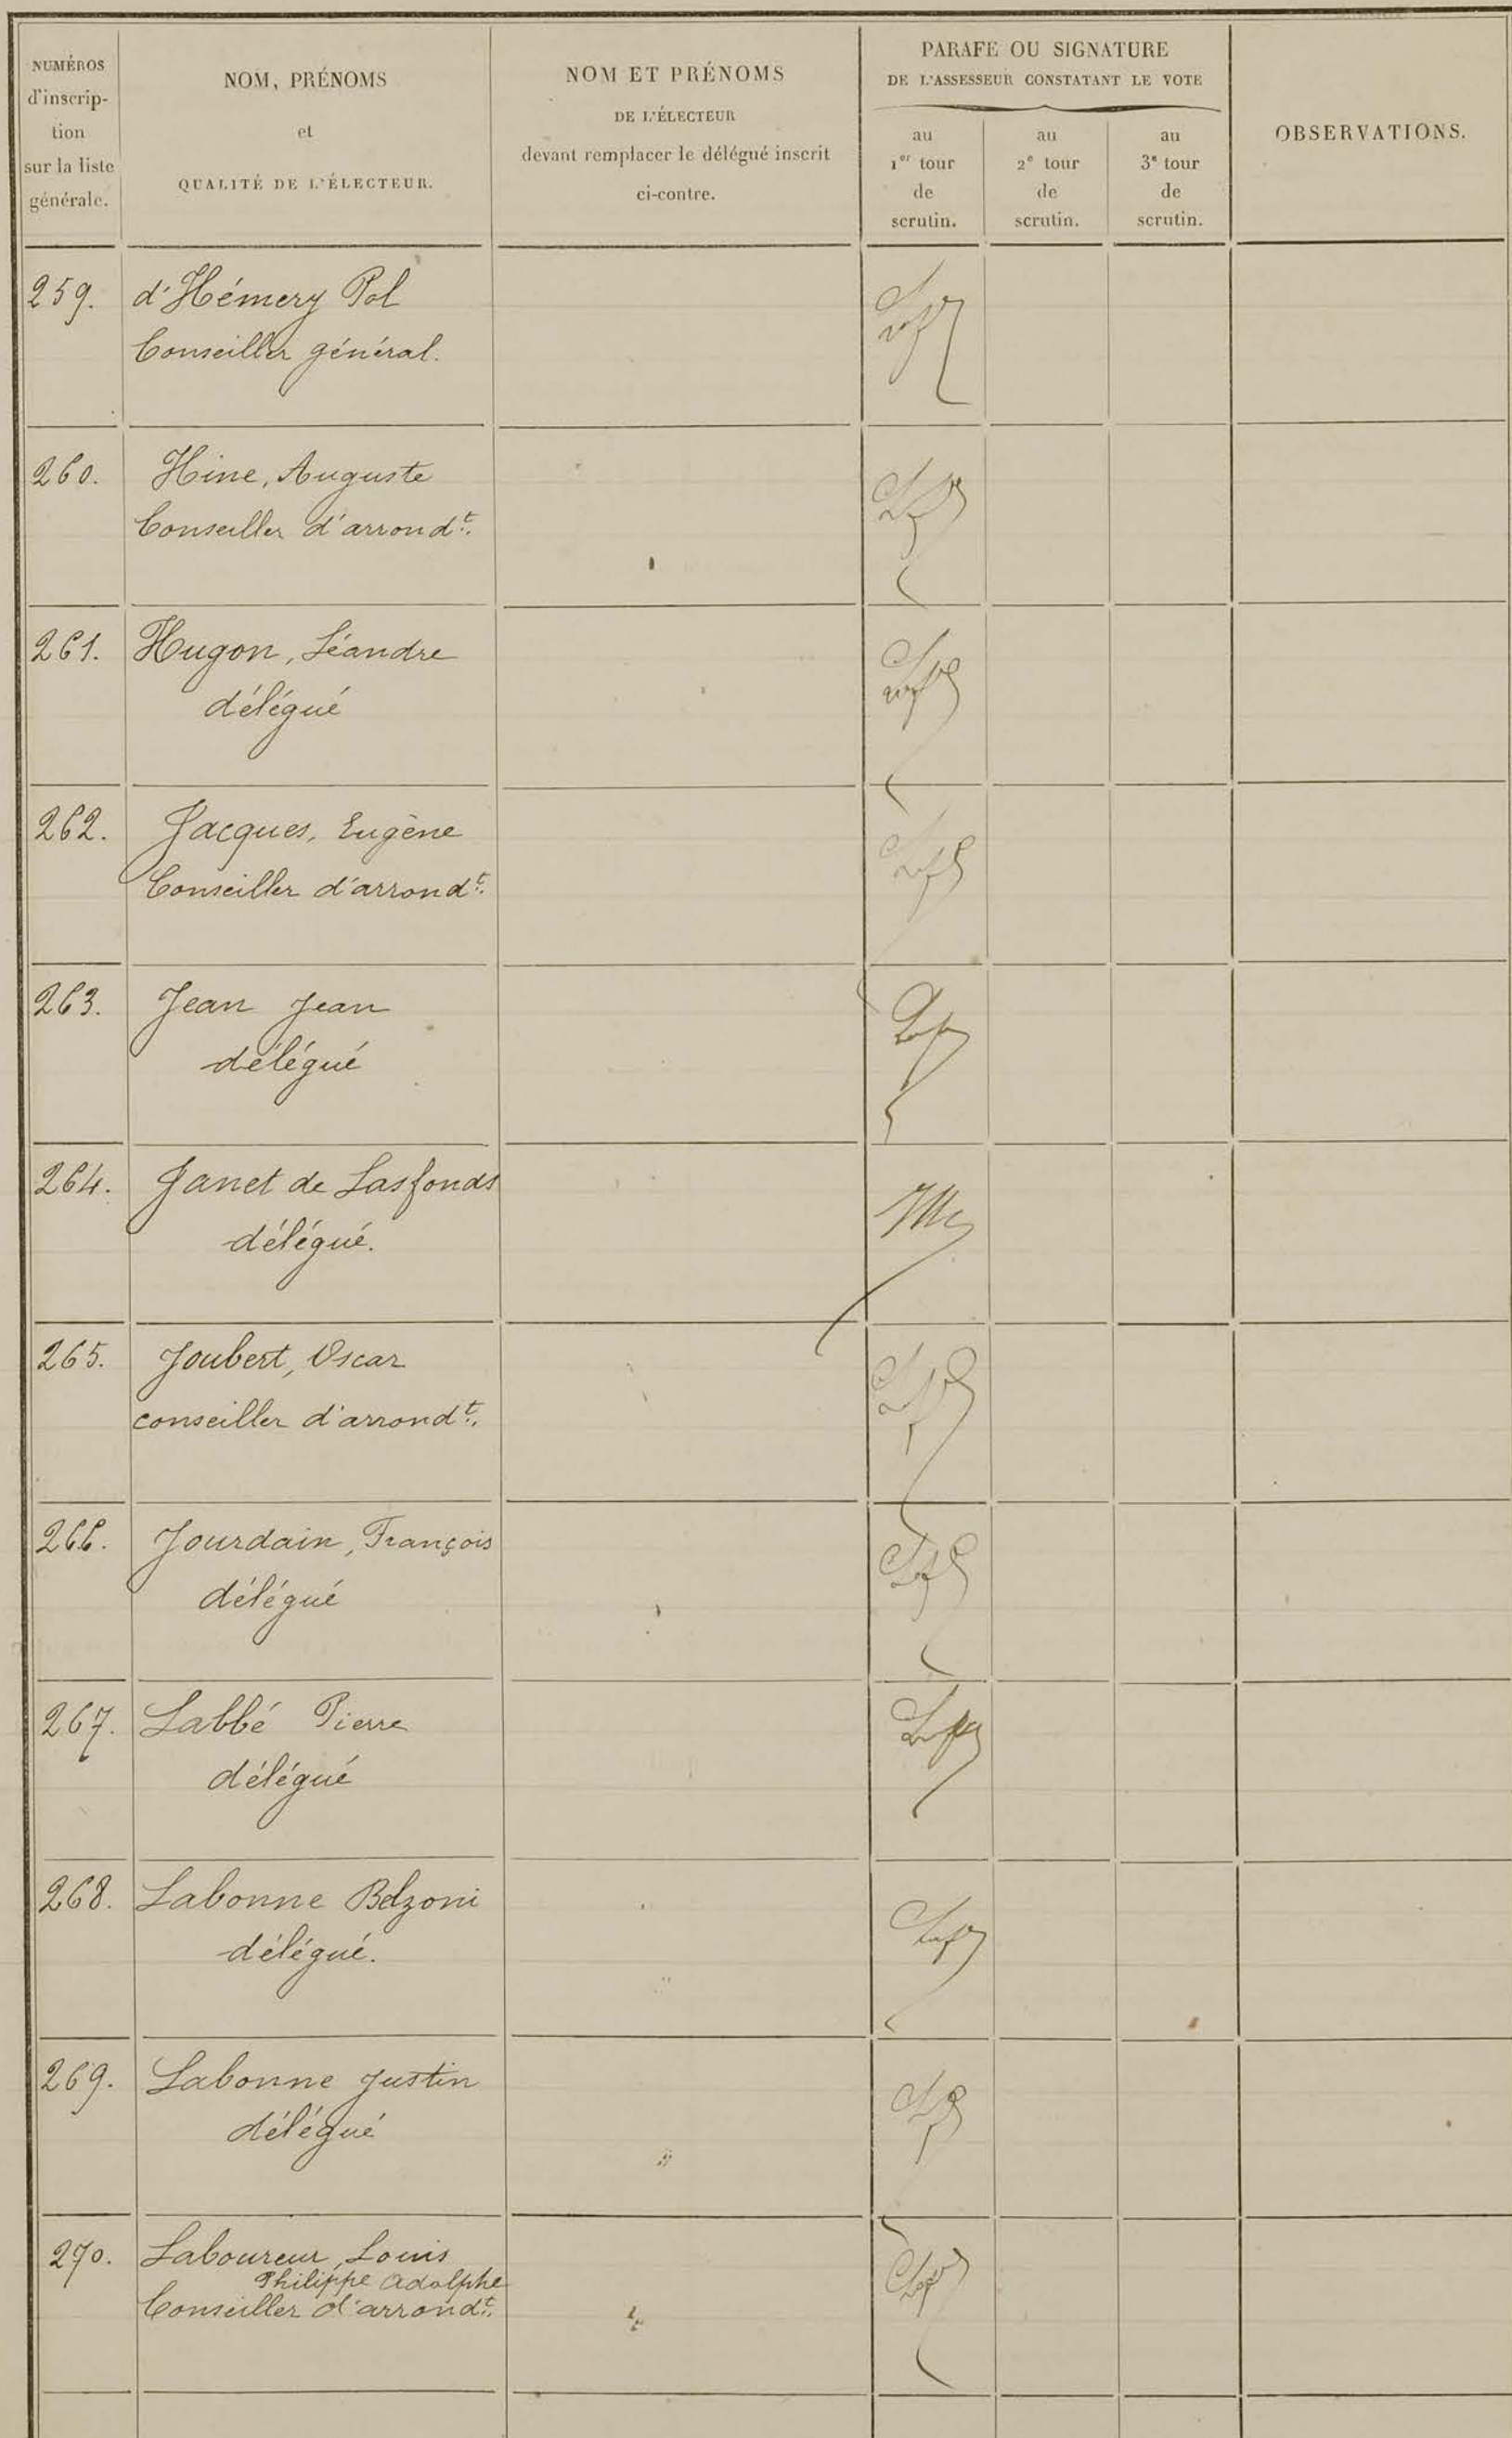 NUMÉROS
d'inscrip-
tion
sur la liste
générale.
NOM, PRÉNOMS
et
QUALITÉ DE L'ÉLECTEUR.
NOM ET PRÉNOMS
DE L'ÉLECTEUR
devant remplacer le délégué inscrit
ci-contre.
PARAFE OU SIGNATURE
DE L'ASSESSEUR CONSTATANT LE VOTE
au
1er tour
de
scrutin.
au
2e tour
de
scrutin.
au
3e tour
de
scrutin.
OBSERVATIONS.
259. d'Hémery Pol
Conseiller général.
260. Hine, Auguste
Conseiller d'arrondt.
261. Hugon, Léandre
délégué
262. Jacques, Eugène
Conseiller d'arrondt.
263. Jean Jean
délégué
264. Janet de Lasfonds
délégué.
265. Joubert, Oscar
conseiller d'arrondt.
266. Jourdain, François
délégué
267. Labbé Pierre
délégué
268. Labonne Belzoni
délégué.
269. Labonne Justin
délégué
270. Laboureur, Louis
Philippe Adolphe
Conseiller d'arrondt.